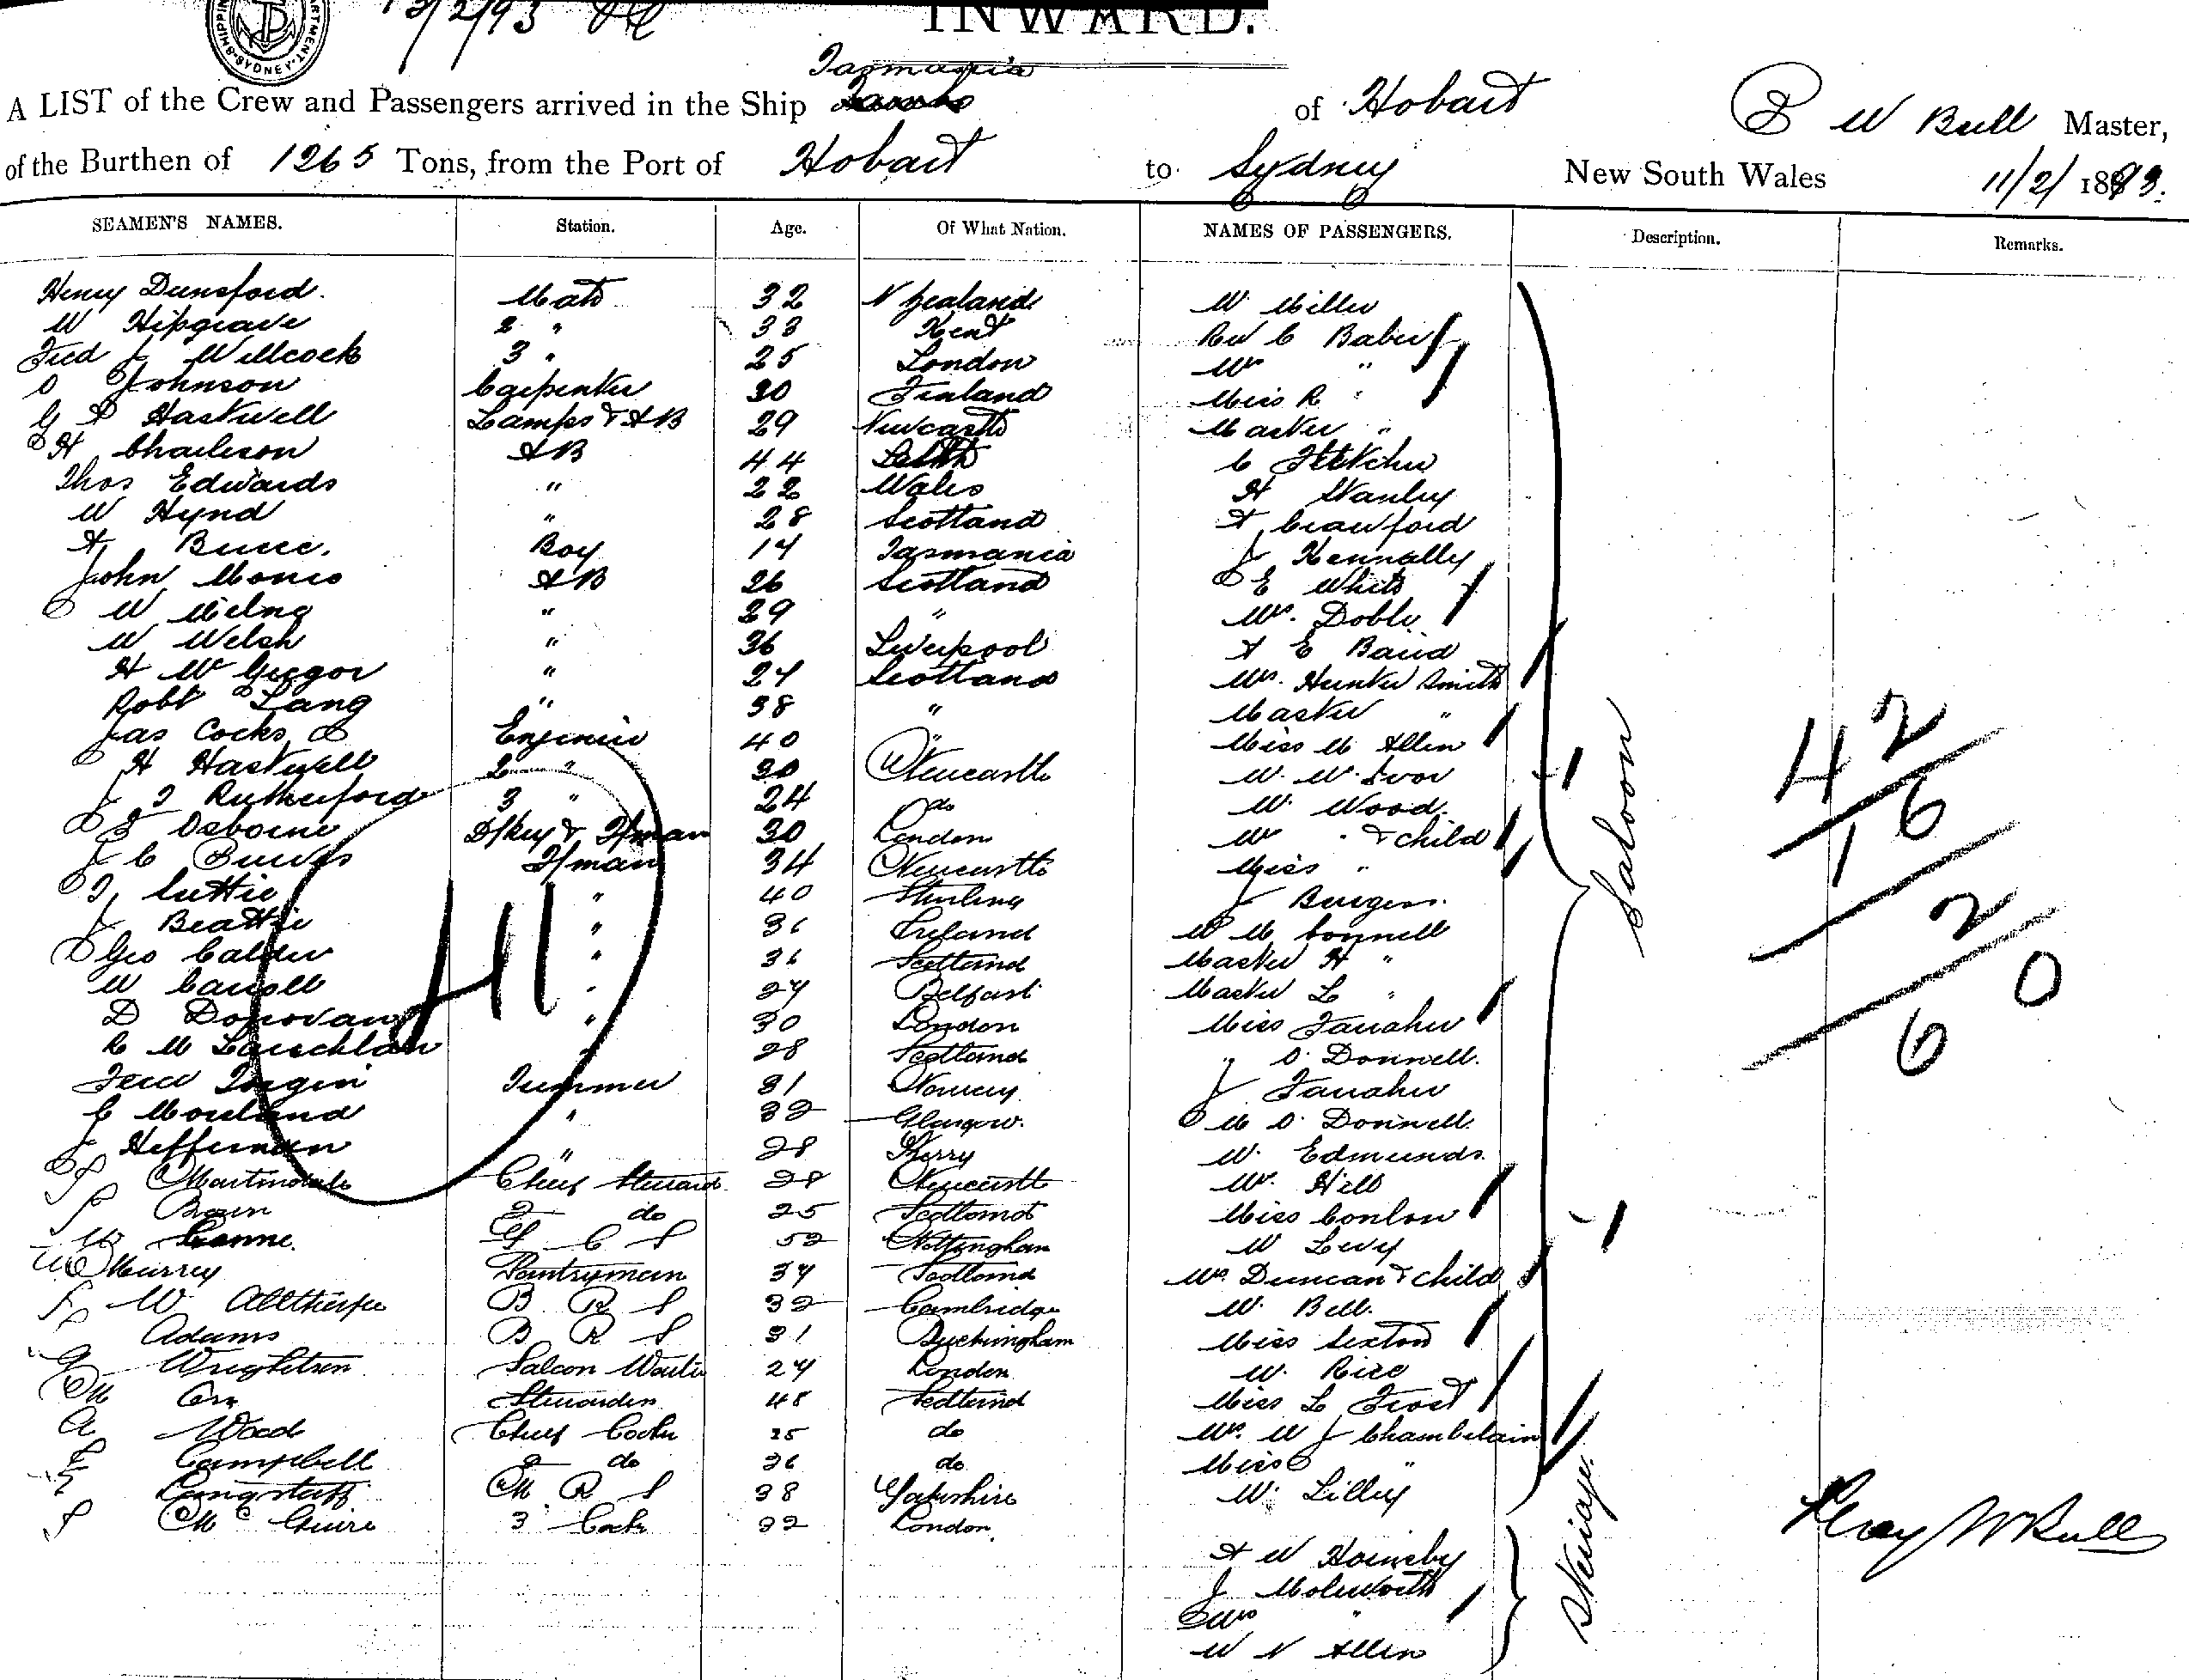 13/2/93
INWARD.
Tasmania
A LIST of the Crew and Passengers arrived in the Ship of Hobart P W Bull Master,
of the Burthen of 1265 Tons, from the Port of Hobart to Sydney New South Wales 11/2/1893.
SEAMEN'S NAMES. Station. Age. Of What Nation. NAMES OF PASSENGERS. Description. Remarks.
Henry Dunsford. Mate 32 N Zealand W. Miller
W Hipgrave 2 " 33 Kent Rev C Baber
Fred J Willcock 3 " 25 London Mrs "
O Johnson Carpenter 30 Finland Miss R "
G P Haswell Lamps & AB 29 Newcastle Master "
H Charleson AB 44 Leith C Fletcher
Thos Edwards " 22 Wales H Stanley
W Hynd " 28 Scotland A Crawford
A Bruce. Boy 17 Tasmania J Kennally
John Monro AB 26 Scotland E White
W Milne " 29 " Mrs. Doble
W Welsh " 36 Liverpool A E Baird
H McGregor " 24 Scotland Mrs. Hunter Smith
Robt Lang " 38 " Master "
Jas Cocks Engineer 40 " Miss M Allen
H Haswell 2 " 30 Newcastle W. McIvor
J T Rutherford 3 " 24 do W. Wood.
Osborne D/key & F/man 30 London " & child
J C F/man 34 Newcastle Miss "
T Cuttie " 40 Stirling J Burgess.
J Beattie " 36 Ireland W McConnell
Geo Calder " 36 Scotland Master H "
W Carroll " 27 Belfast Master L "
D Donovan " 30 London Miss Fanaher
R McLauchlan " 28 Scotland " O'Donnell.
Trimmer 31 Norway J Fanaher
C Moreland " 32 Glasgow. M O'Donnell.
J Heffernan " 28 Kerry W. Edmunds.
J Martindale Chief Steward 28 Newcastle Mrs. Hill
J 2 do 25 Scotland Miss Conlon
F C S 52 Nottingham W Levy
Murray Pantryman 37 Scotland Mrs. Duncan & child
W Allthorpe B R S 32 Cambridge W. Bell.
Adams B R S 31 Buckingham Miss Sexton
Wrightson Saloon Waiter 27 London W. Rice
M Orr Stewardess 48 Scotland Miss L Frost
A Wood Chief Cook 25 do Mrs. W J Chamberlain
Campbell 2 do 26 do Miss "
Langstaff M R S 38 Yorkshire W. Lilley
J McGuire 3 Cook 22 London
A W Hornsby
J Molesworth
Mrs "
W N Allen
Saloon
Steerage.
41
42
16
2
60
Percy W Bull